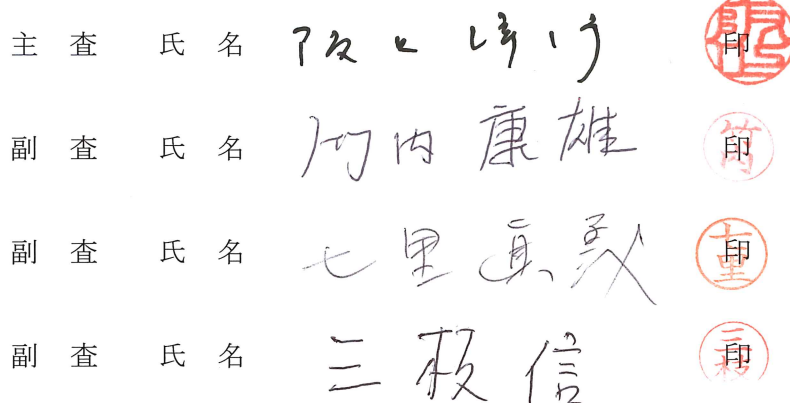 主査 氏名 阪口 印
副査 氏名 竹内康雄 印
副査 氏名 七里眞義 印
副査 氏名 三枝信 印